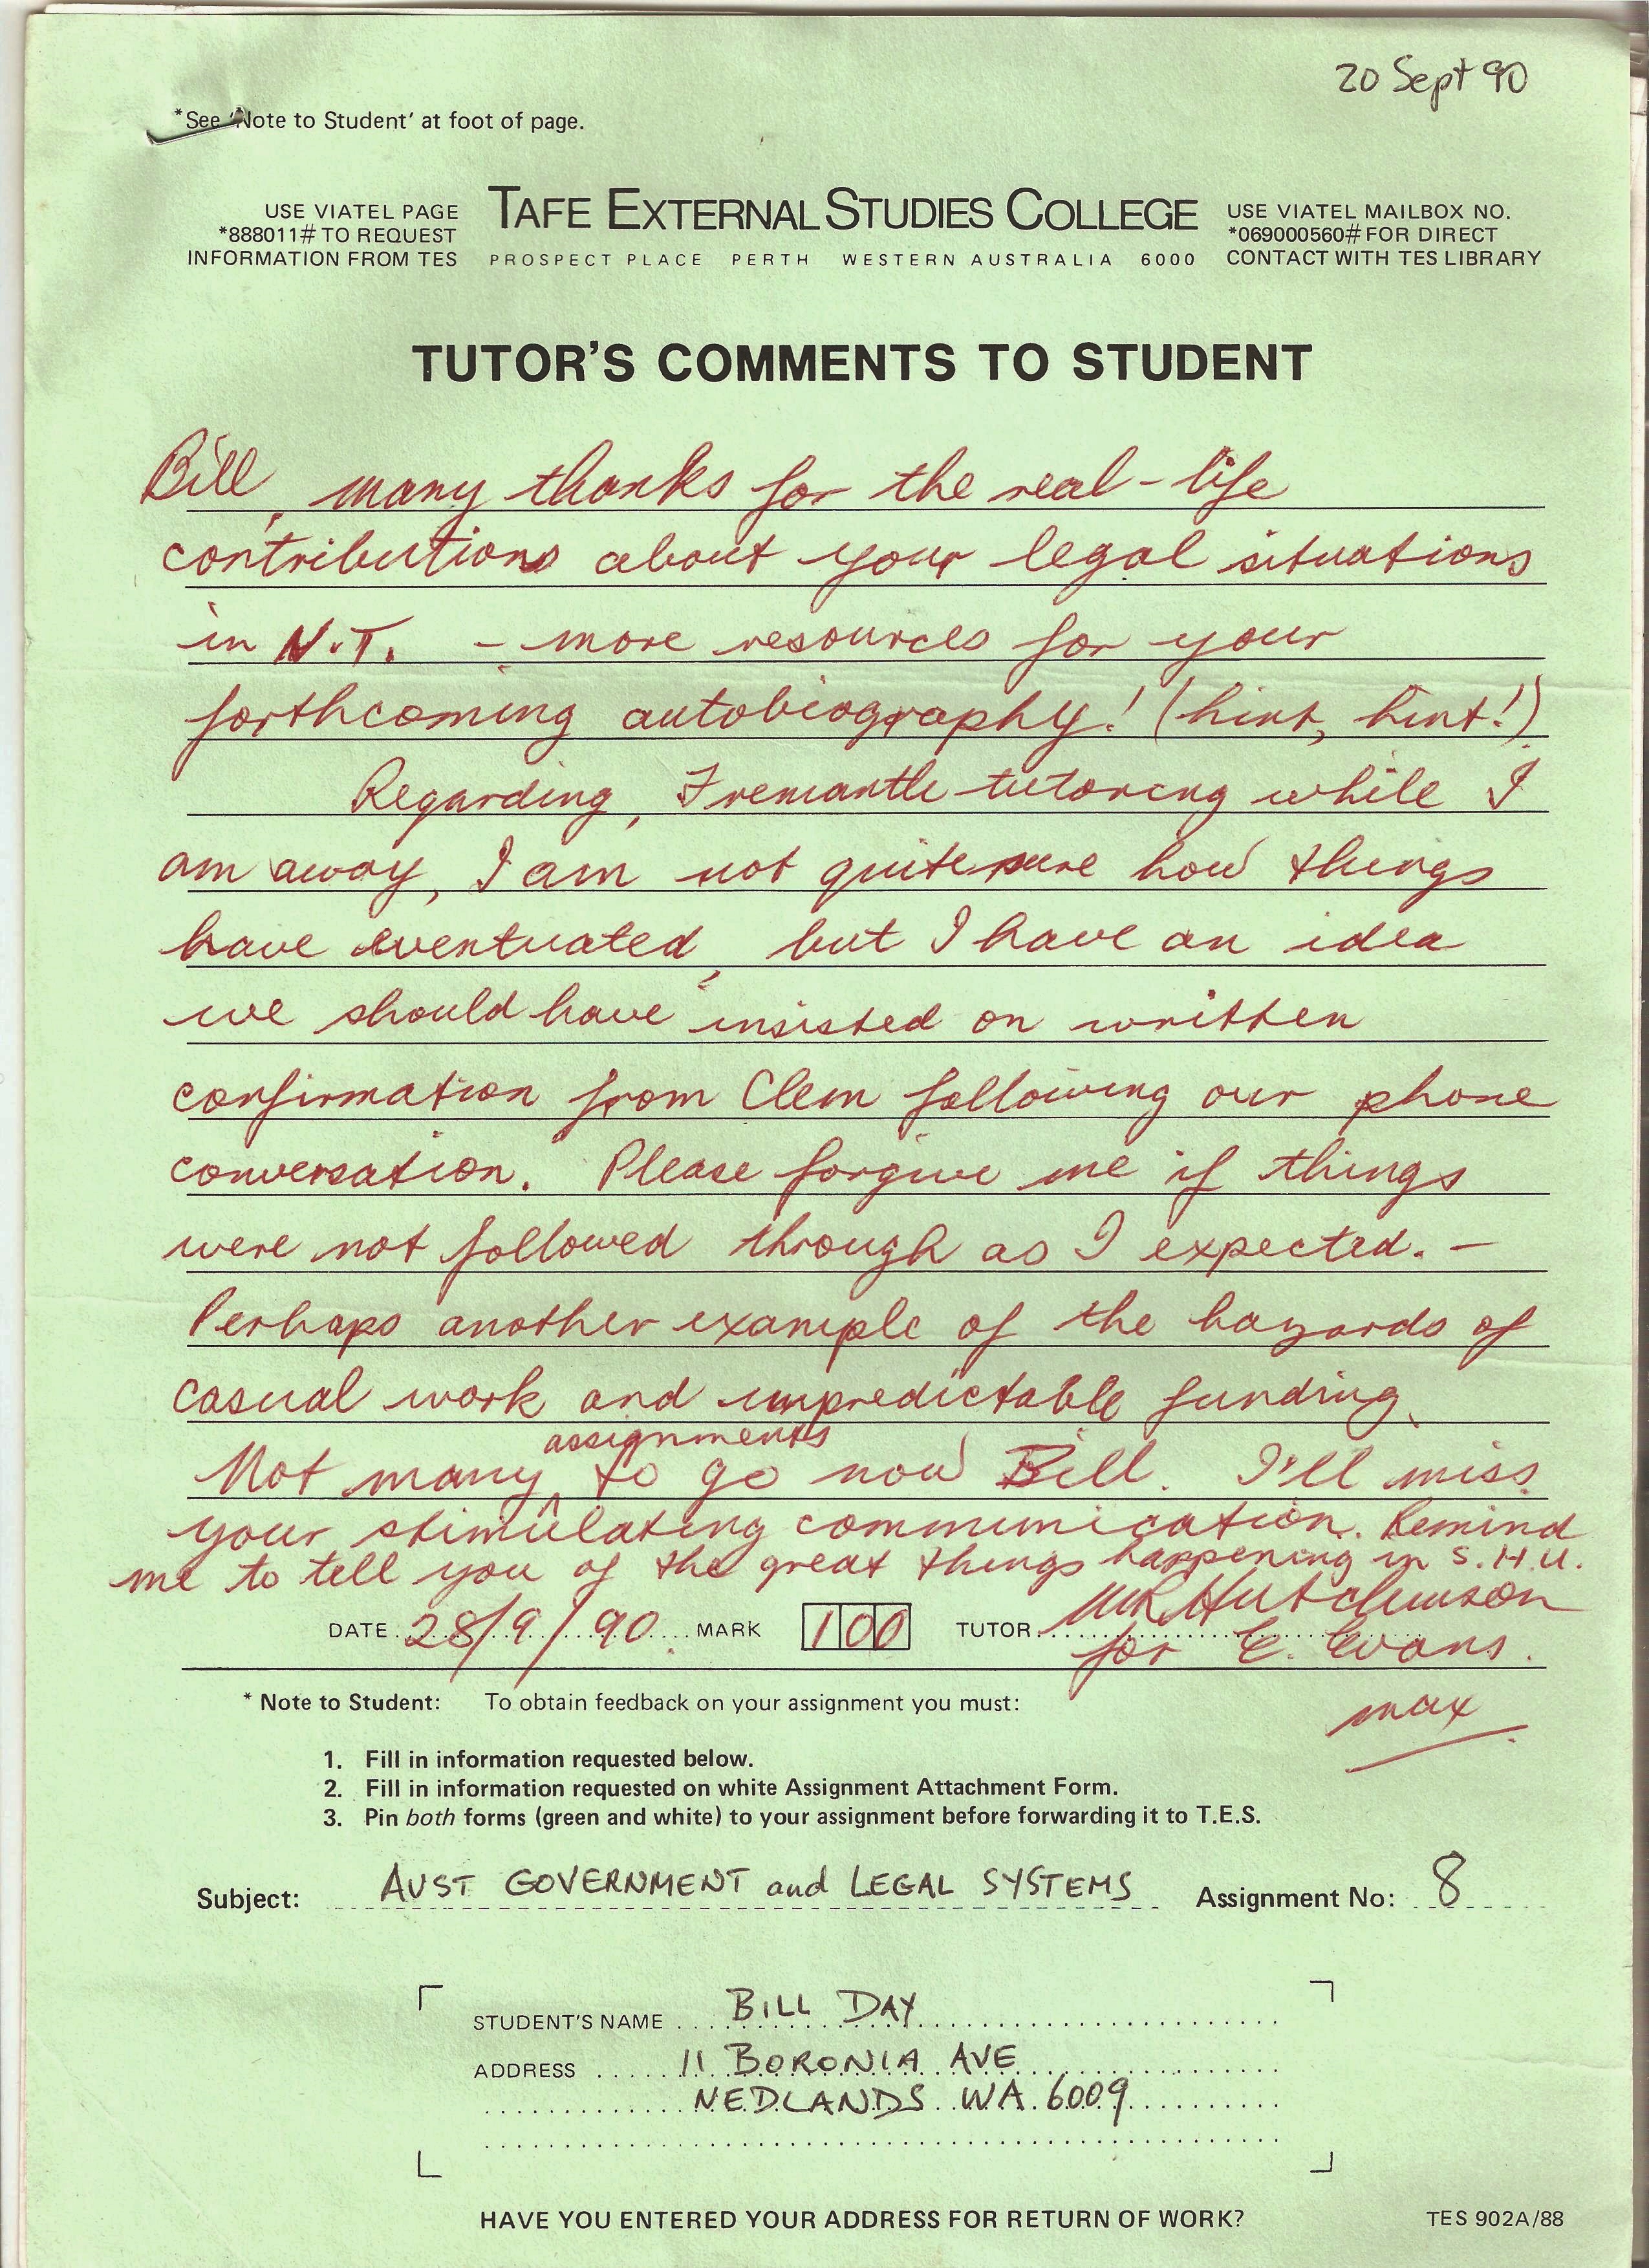 20 Sept 90
*See 'Note to Student' at foot of page.
USE VIATEL PAGE
*888011# TO REQUEST
INFORMATION FROM TES
TAFE EXTERNAL STUDIES COLLEGE
PROSPECT PLACE PERTH WESTERN AUSTRALIA 6000
USE VIATEL MAILBOX NO.
*069000560# FOR DIRECT
CONTACT WITH TES LIBRARY
TUTOR'S COMMENTS TO STUDENT
Bill, many thanks for the real-life
contributions about your legal situations
in N.T. - more resources for your
forthcoming autobiography! (hint, hint!)
Regarding, Fremantle tutoring while I
am away, I am not quite sure how things
have eventuated, but I have an idea
we should have insisted on written
confirmation from Clem following our phone
conversation. Please forgive me if things
were not followed through as I expected. -
Perhaps another example of the hazards of
casual work and unpredictable funding.
Not many assignments to go now Bill. I'll miss
your stimulating communication. Remind
me to tell you of the great things happening in S.H.U.
DATE 28/9/90 MARK 100 TUTOR MR Hutchinson
for E. Evans.
max
* Note to Student: To obtain feedback on your assignment you must:
1. Fill in information requested below.
2. Fill in information requested on white Assignment Attachment Form.
3. Pin both forms (green and white) to your assignment before forwarding it to T.E.S.
Subject: AUST GOVERNMENT and LEGAL SYSTEMS Assignment No: 8
STUDENT'S NAME BILL DAY
ADDRESS 11 BORONIA AVE
NEDLANDS WA 6009
HAVE YOU ENTERED YOUR ADDRESS FOR RETURN OF WORK?
TES 902A/88